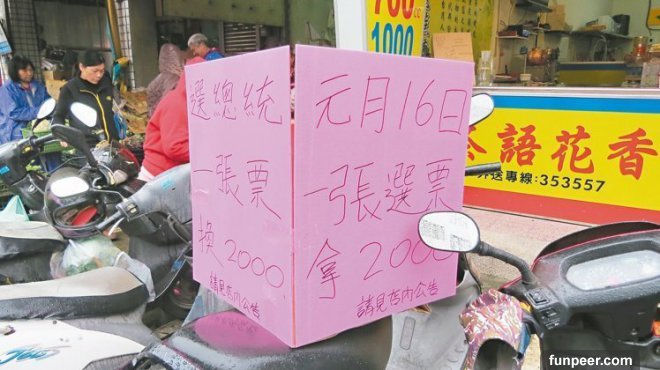 選總統
一張票
換2000
請見店內公告
元月16日
一張選票
拿2000
請見店內公告
700
cc
1000
茶語花香
外送專線:353557
funpeer.com